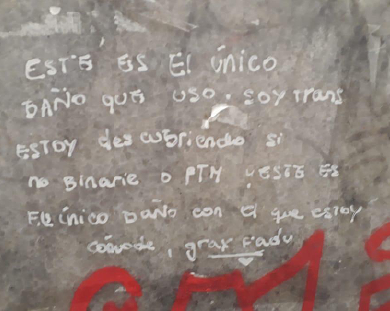 ESTE ES El ÚNICO
BAÑO QUE USO. SOY Trans
ESTOY descubriendo si
no Binarie o PTM y ESTE ES
El único Baño con el que estoy
cómode, grax Fadu